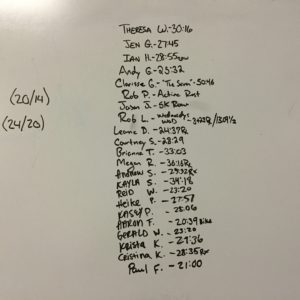 THERESA W.-30:16
JEN G.-27:45
IAN H.-28:55
Andy G.-25:32
Clarisse G.-"Tie Som"-50:46
Rob P.-Active Rest
Jason J.-5K Row
Rob L.-Wednesdays WOD
Leanne D.-24:37Rx
Courtney S.-28:29
Brienne T.-33:03
Megan R.-30:18Rx
Andrew S.-25:32Rx
KAYLA S.-34:18
REID W.-23:20
Heike P.-27:57
KASEY P.-28:06
AARON F.-20:39 Bike
GERALD W.-23:20
Krista K.-27:36
Cristina K.-28:35Rx
Paul F.-21:00
(20/14)
(24/20)